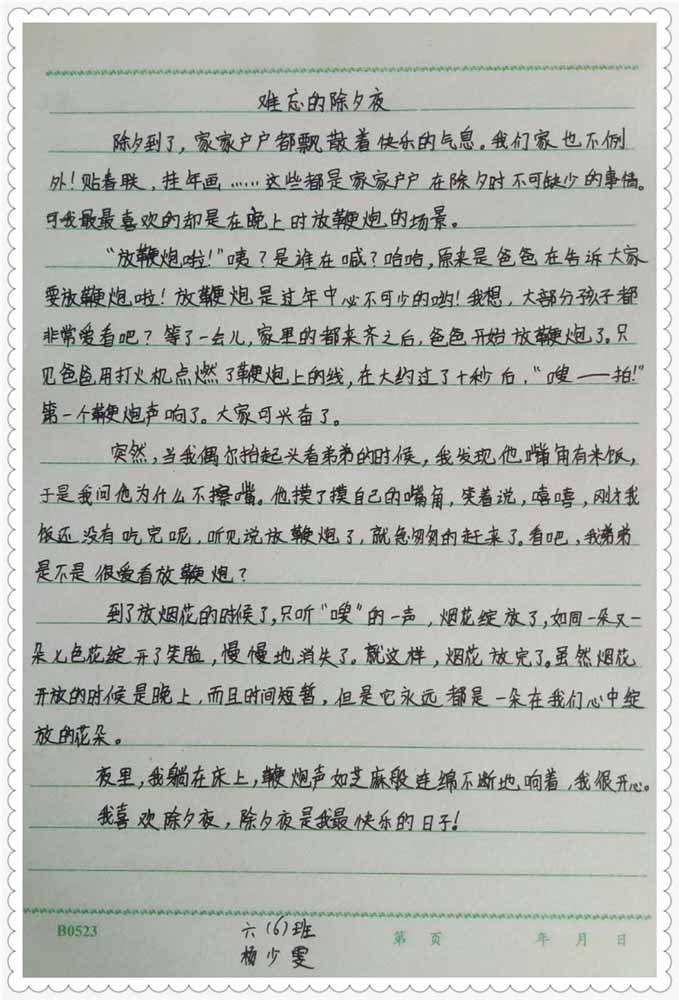 难忘的除夕夜
除夕到了，家家户户都飘散着快乐的气息。我们家也不例
外！贴春联，挂年画……这些都是家家户户在除夕时不可缺少的事情。
可我最最喜欢的却是在晚上时放鞭炮的场景。
“放鞭炮啦！”咦？是谁在喊？哈哈，原来是爸爸在告诉大家
要放鞭炮啦！放鞭炮是过年中必不可少的哟！我想，大部分孩子都
非常爱看吧？等了一会儿，家里的都来齐之后，爸爸开始放鞭炮了。只
见爸爸用打火机点燃了鞭炮上的线，在大约过了十秒后，“嗖——拍！”
第一个鞭炮声响了。大家可兴奋了。
突然，当我偶尔抬起头看弟弟的时候，我发现他嘴角有米饭，
于是我问他为什么不擦嘴。他摸了摸自己的嘴角，笑着说，嘻嘻，刚才我
饭还没有吃完呢，听见说放鞭炮了，就急匆匆的赶来了。看吧，我弟弟
是不是很爱看放鞭炮？
到了放烟花的时候了，只听“嗖”的一声，烟花绽放了，如同一朵又一
朵七色花绽开了笑脸，慢慢地消失了。就这样，烟花放完了。虽然烟花
开放的时候是晚上，而且时间短暂，但是它永远都是一朵在我们心中绽
放的花朵。
夜里，我躺在床上，鞭炮声如芝麻般连绵不断地响着，我很开心。
我喜欢除夕夜，除夕夜是我最快乐的日子！
B0523 第 页 年 月 日
六（6）班
杨少雯